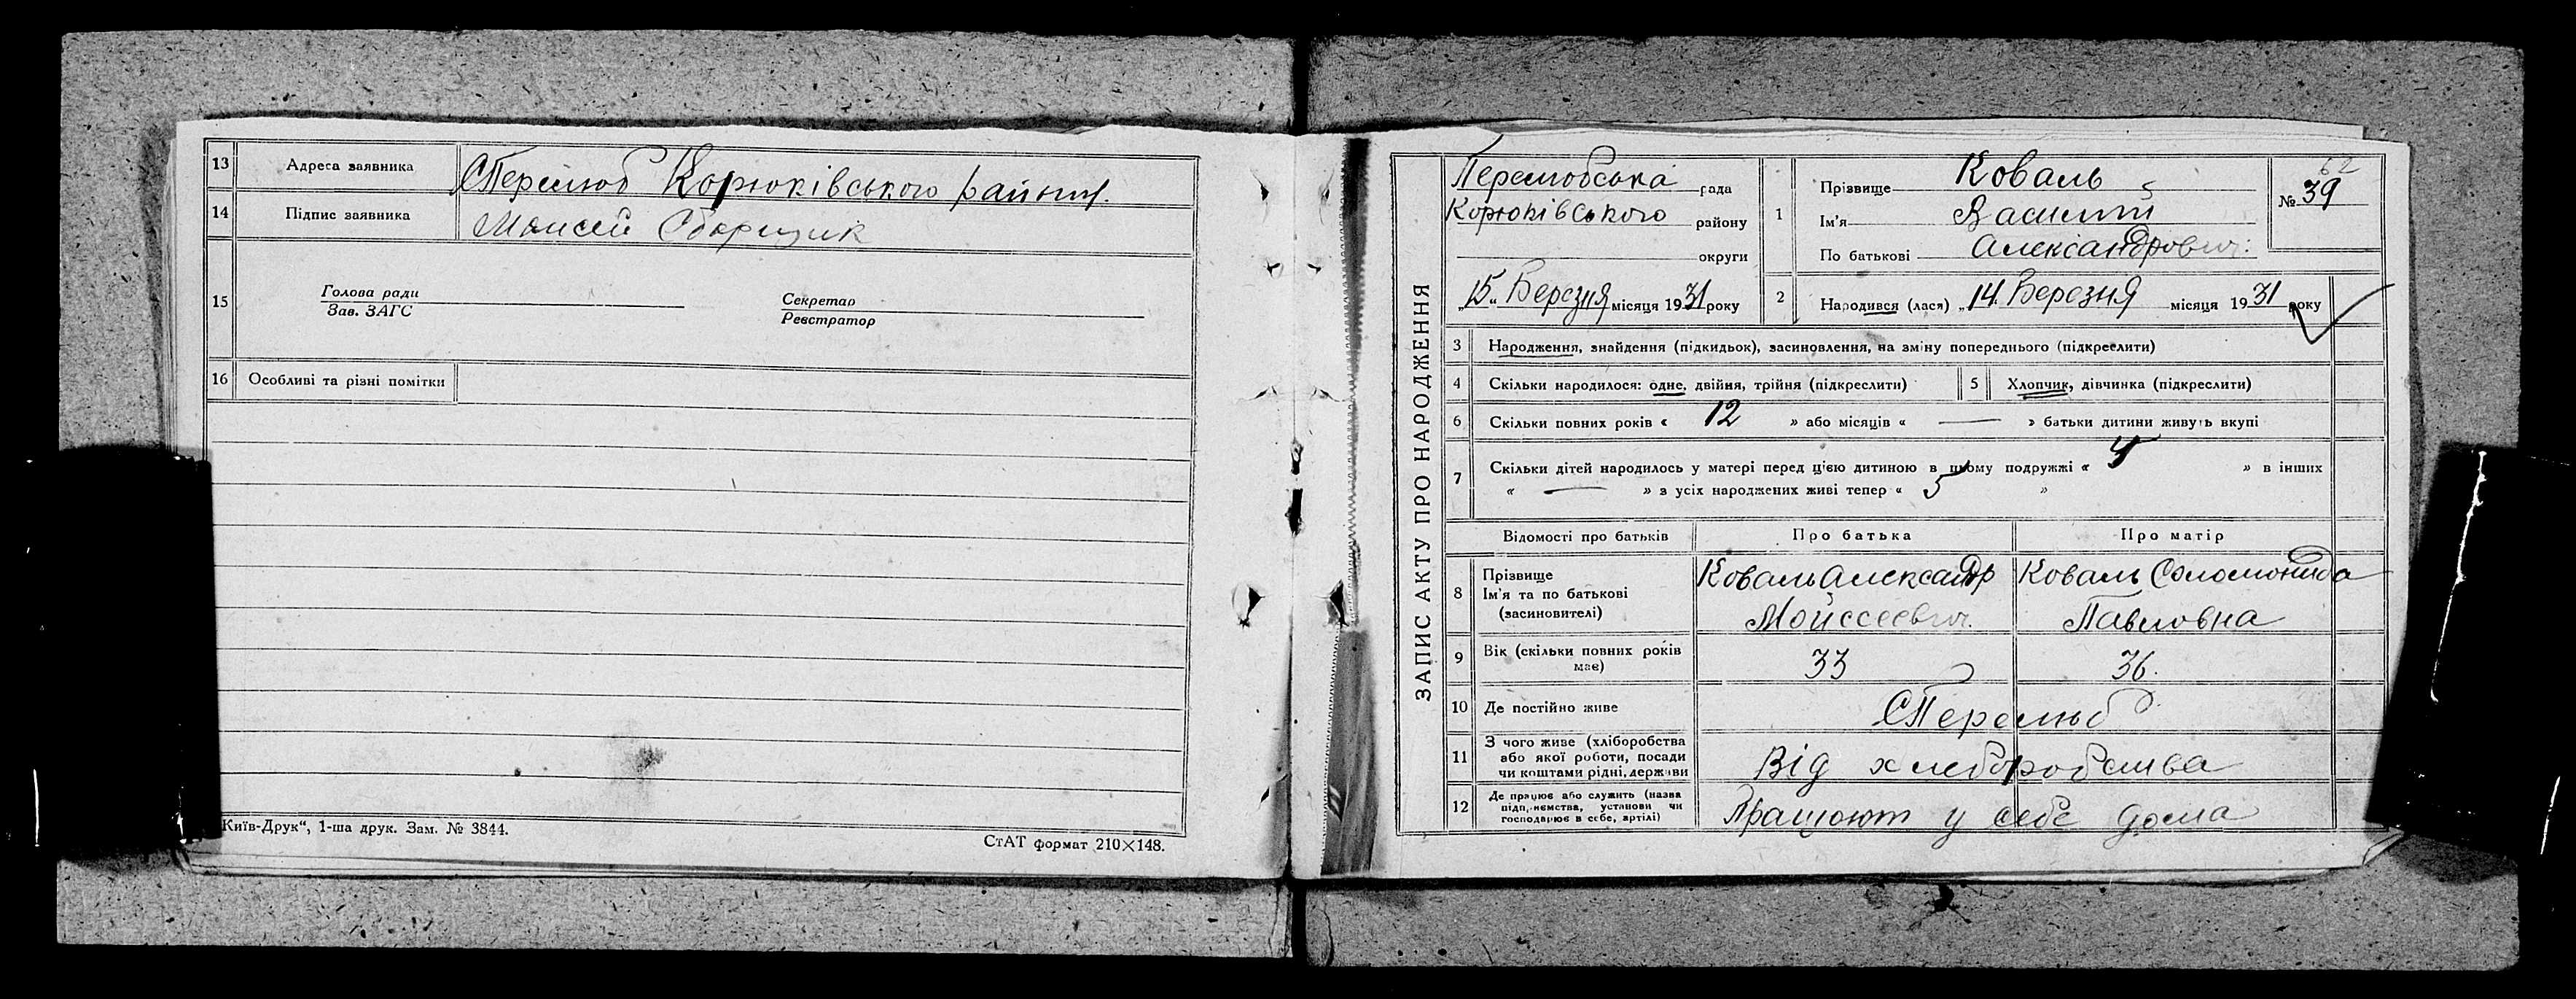 13 Адреса заявника С Перелюб Корюківського району.
14 Підпис заявника Моисей Сборщик
15 Голова ради
Зав. ЗАГС
Секретар
Реєстратор
16 Особливі та різні помітки
Київ-Друк“, 1-ша друк. Зам. № 3844.
СтАТ формат 210×148.
ЗАПИС АКТУ ПРО НАРОДЖЕННЯ
Перелюбська рада
Корюківського району
округи
„15„ Березня місяця 1931 року
1 Прізвище Коваль
Ім'я Василий
По батькові Александрович.
62
№ 39
2 Народився (лася) „14. Березня місяця 1931 року
3 Народження, знайдення (підкидьок), засиновлення, на зміну попереднього (підкреслити)
4 Скільки народилося: одне, двійня, трійня (підкреслити)
5 Хлопчик, дівчинка (підкреслити)
6 Скільки повних років « 12 » або місяців « — » батьки дитини живуть вкупі
7 Скільки дітей народилось у матері перед цією дитиною в цьому подружжі « 4 » в інших
« — » з усіх народжених живі тепер « 5 »
Відомості про батьків Про батька Про матір
8 Прізвище
Ім'я та по батькові
(засиновителі)
Коваль Александр
Мойсеевич.
Коваль Соломонида
Павловна
9 Вік (скільки повних років
має)
33 36.
10 Де постійно живе С Перелюб
11 З чого живе (хліборобства
або якої роботи, посади
чи коштами рідні, держави
Від хлеборобства
12 Де працює або служить (назва
підприємства, установи чи
господарює в себе, артілі)
Працюют у себе дома